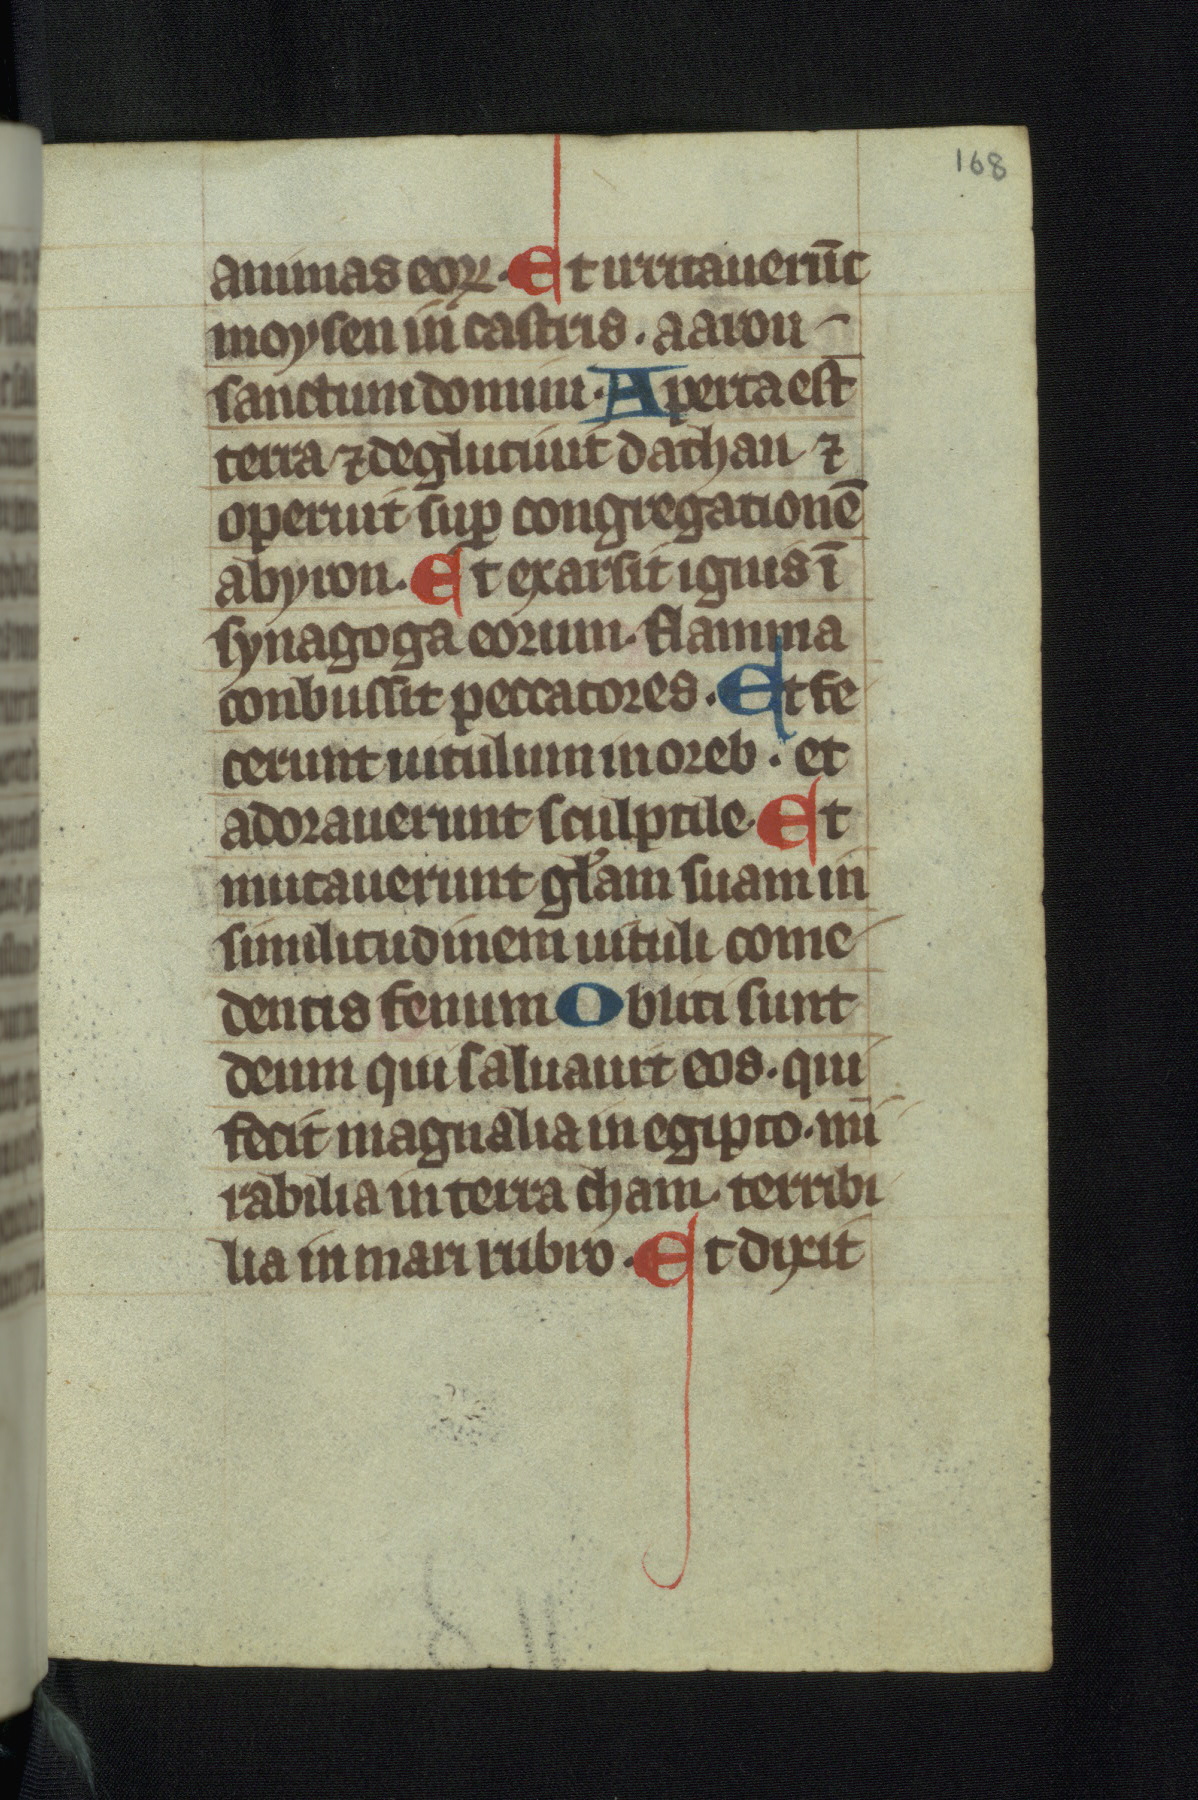 168
animas eoꝝ. Et irritauerūt
moysen in castris. aaron
sanctum domini. Aperta est
terra ⁊ deglutiuit dathan ⁊
operuit suꝑ congregationē
abyron. Et exarsit ignis ī
synagoga eorum. flamma
conbussit peccatores. Et fe
cerunt uitulum in oreb. et
adorauerunt sculptile. Et
mutauerunt gl̓am suam in
similitudinem uituli come
dentis fenum Obliti sunt
deum qui saluauit eos. qui
fecit magnalia in egipto. mi
rabilia in terra cham. terribi
lia in mari rubro. Et dixit